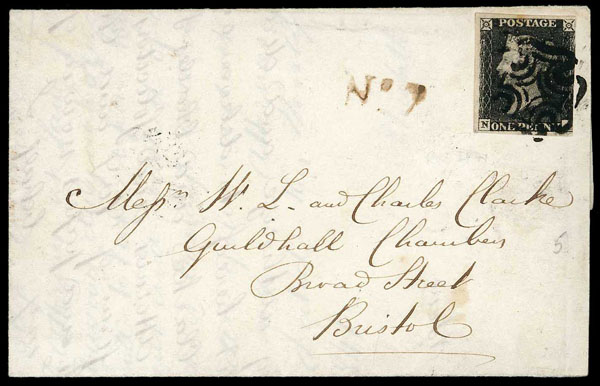 POSTAGE
No 7
N
ONE PENNY
Messrs W. L. and Charles Clarke
Guildhall Chambers
Broad Street
Bristol
5